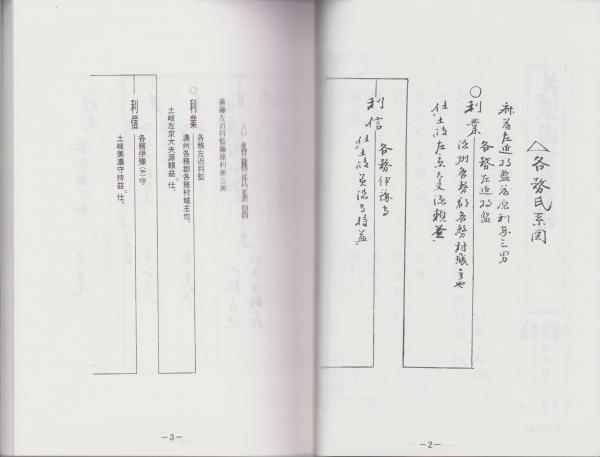 △各務氏系図
斎藤左近将監藤原利家三男
○利業
各務左近将監
濃州各務郡各務村城主也
仕土岐左京大夫源頼益
利信
各務伊豫守
仕土岐美濃守持益
－2－
△各務氏系図
斎藤左近将監藤原利家三男
○利業
各務左近将監
濃州各務郡各務村城主也。
土岐左京大夫源頼益ニ仕。
利信
各務伊豫(予)守
土岐美濃守持益ニ仕。
－3－